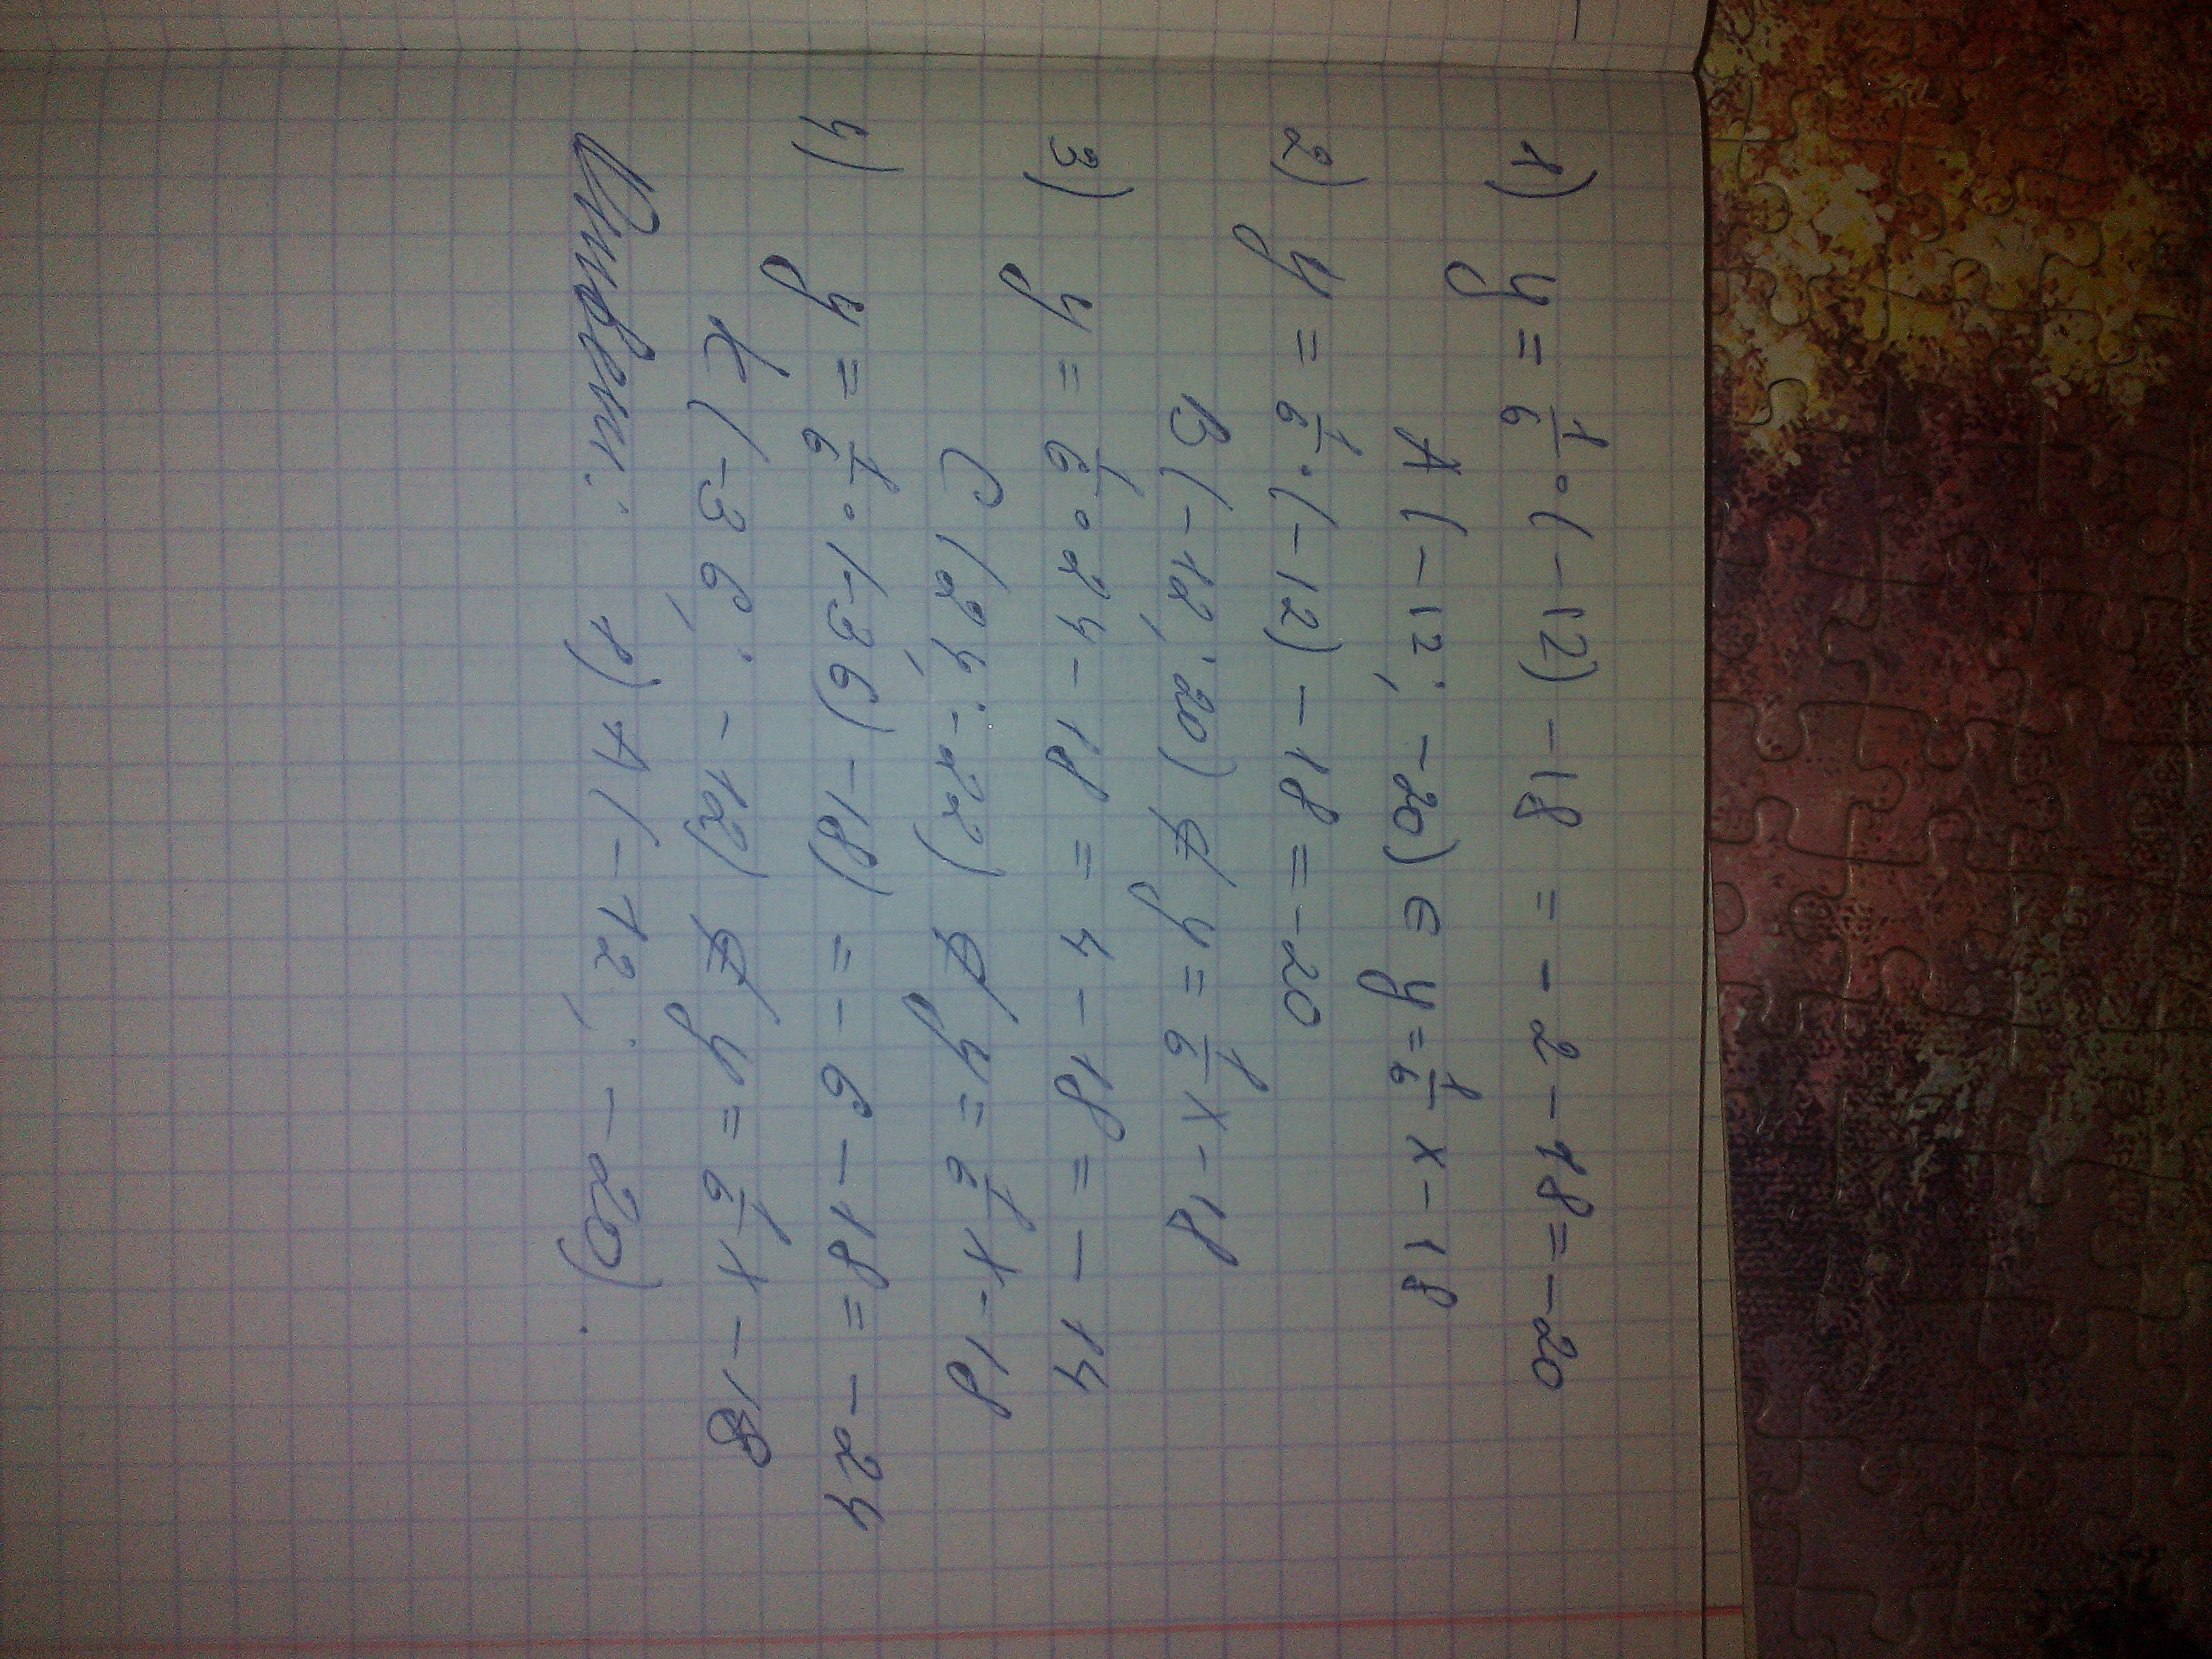 1) y = 1/6 · (-12) - 18 = -2 - 18 = -20
A (-12; -20) ∈ y = 1/6 x - 18
2) y = 1/6 · (-12) - 18 = -20
B (-12; 20) ∉ y = 1/6 x - 18
3) y = 1/6 · 24 - 18 = 4 - 18 = - 14
C (24; -22) ∉ y = 1/6 x - 18
4) y = 1/6 · (-36) - 18) = - 6 - 18 = -24
K (-36; -12) ∉ y = 1/6 x - 18
Ответ: 1) A (-12; -20).